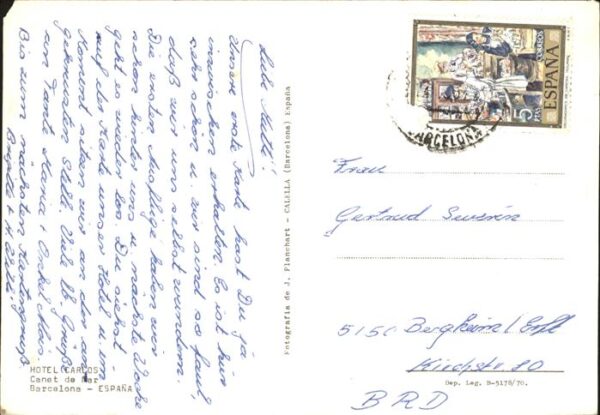 Liebe Mutti!
Unsere erste Karte hast Du ja
inzwischen erhalten. Es ist hier
sehr schön u. wir sind so faul,
daß wir uns selbst wundern.
Die ersten Ausflüge haben wir
schon hinter uns u. nächste Woche
geht es wieder los. Du siehst
auf der Karte unser Hotel u. im
Moment sitzen wir an der an-
gekreuzten Stelle. Viele lb. Grüße
an Tante Maria + Onkel Alois.
Bis zum nächsten Kartengruß
HOTEL CARLOS
Canet de Mar
Barcelona - ESPAÑA
Fotografía de J. Planchart - CALELLA (Barcelona) España
CORREOS
ESPAÑA
5
PTAS
BARCELONA
Frau
Gertrud Severin
5150 Bergheim/Erft
Kirchstr. 80
BRD
Dep. Leg. B-5178/70.